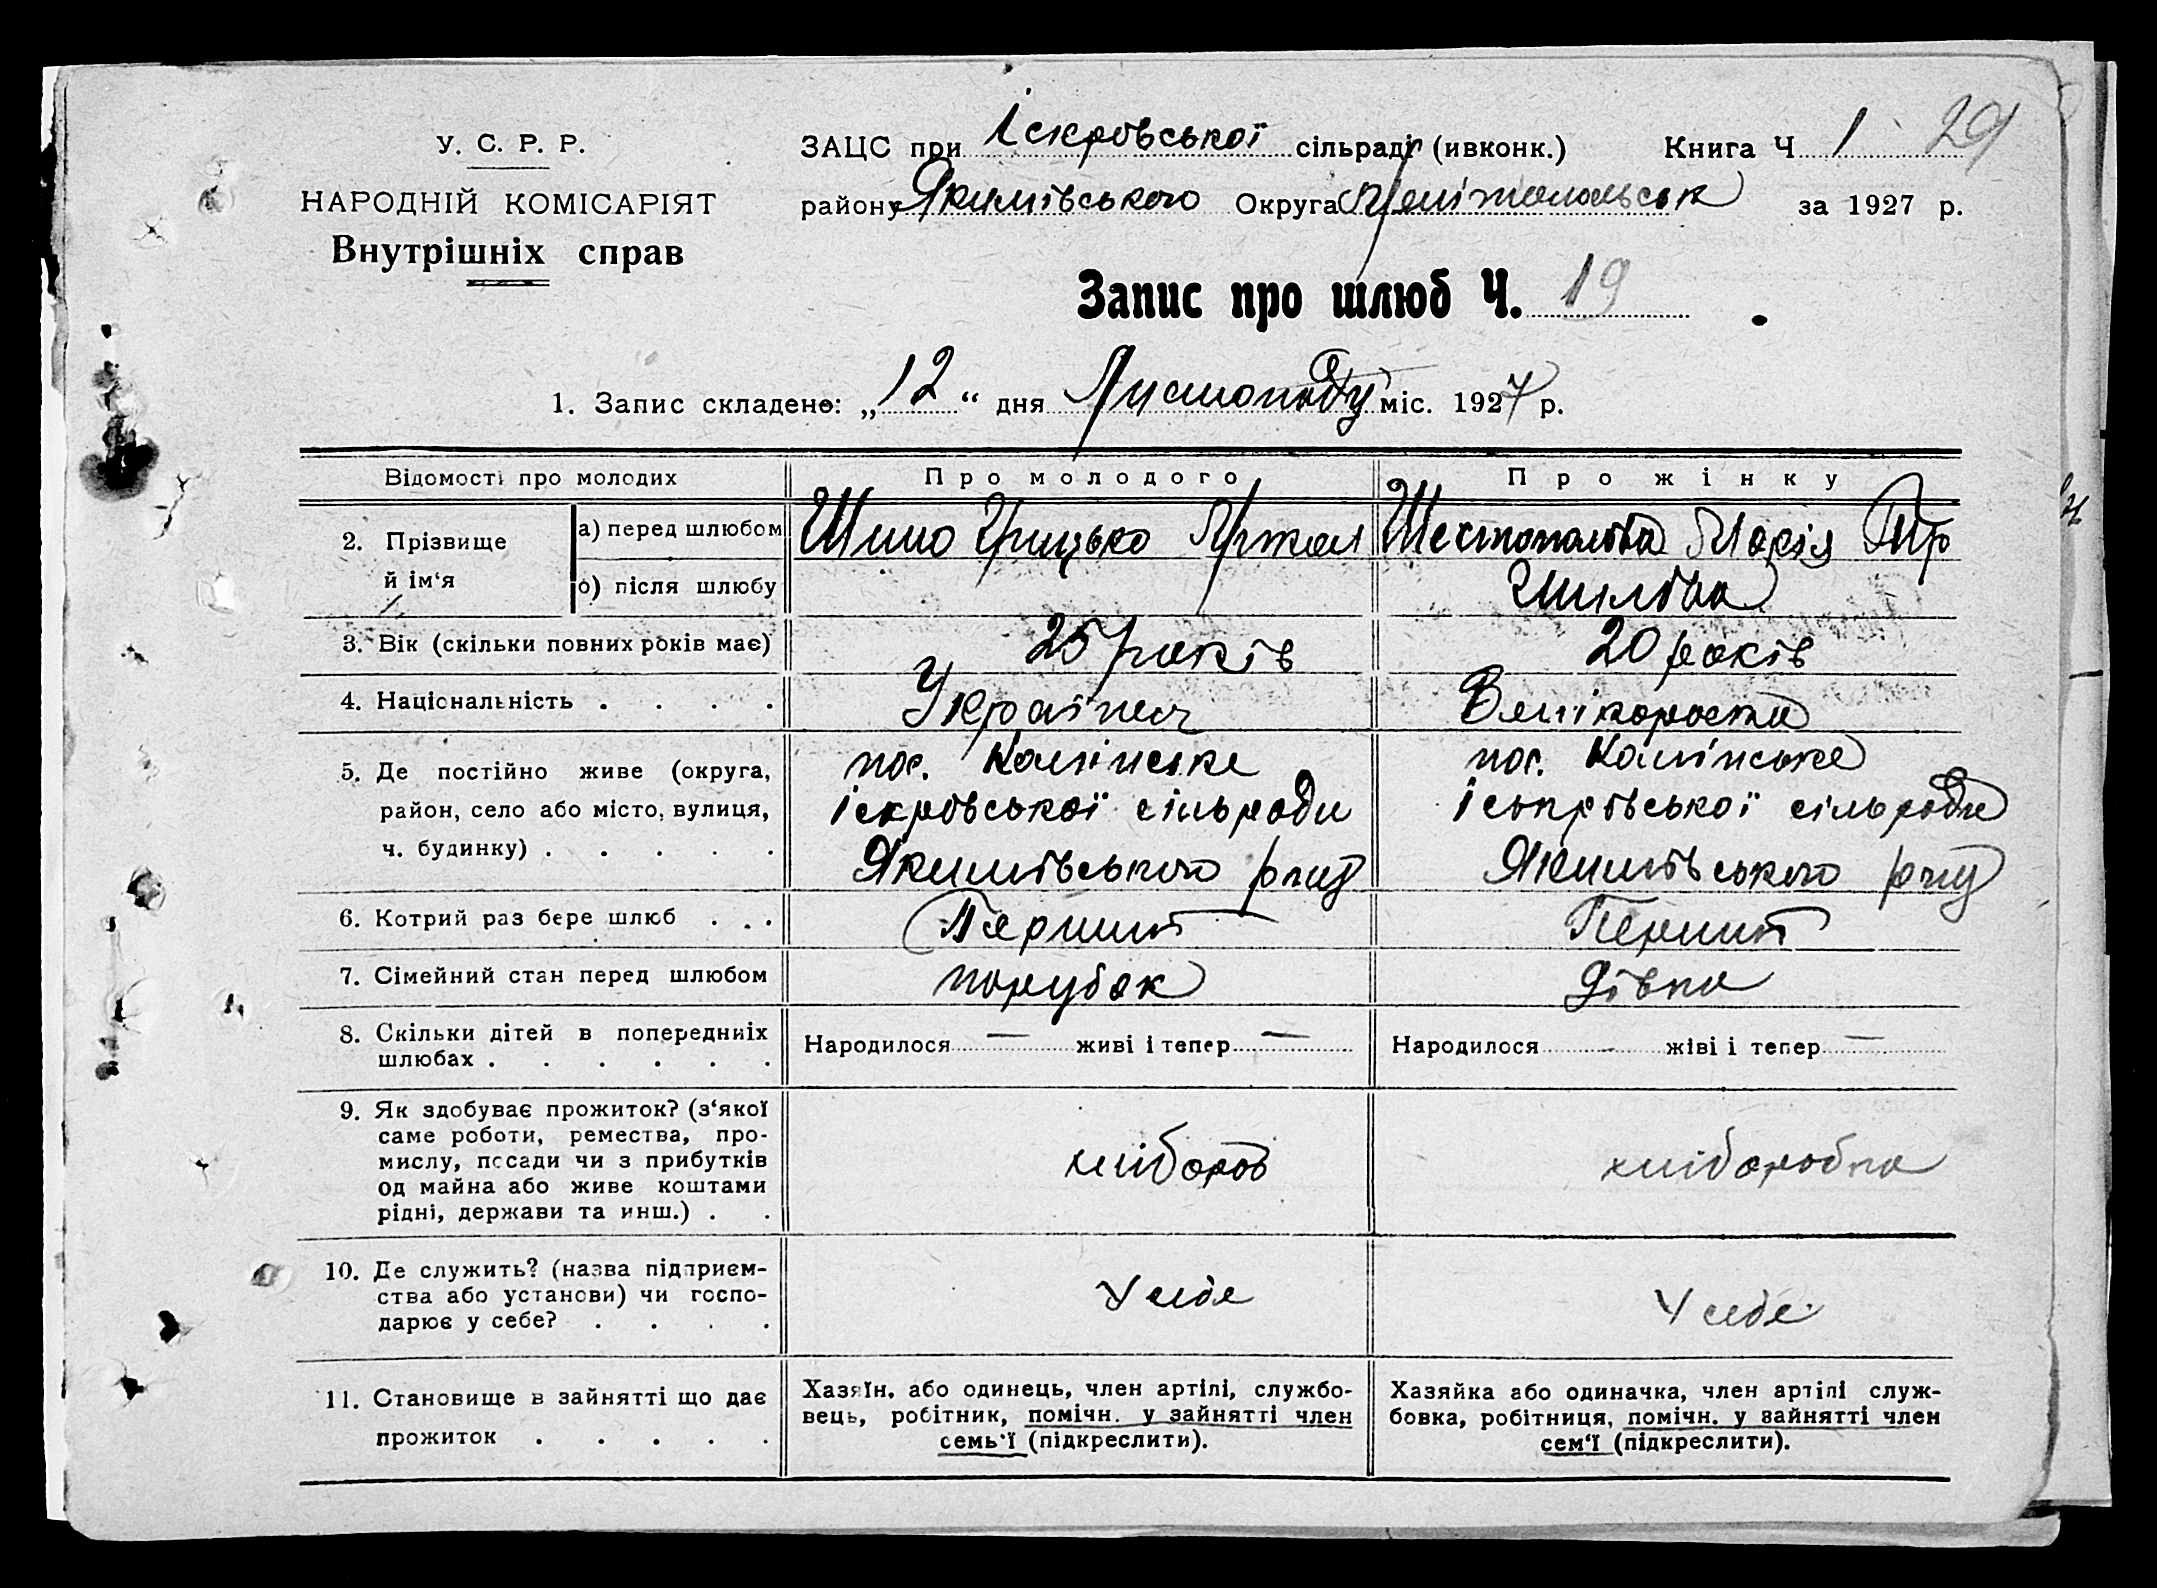 У. С. Р. Р.
НАРОДНІЙ КОМІСАРІЯТ
Внутрішніх справ
ЗАЦС при Іскрівської сільраді (ивконк.) Книга Ч 1 29
району Якимівського Округа Мелітопольськ за 1927 р.
Запис про шлюб Ч. 19
1. Запис складено: „12“ дня Листопаду міс. 1927 р.
Відомості про молодих Про молодого Про жінку
2. Прізвище й ім‘я
а) перед шлюбом Шило Грицько Шестопалова Марія Тр
б) після шлюбу Шилова
3. Вік (скільки повних років має) 25 років 20 років
4. Національність . . . . Українец Великороска
5. Де постійно живе (округа, пос. Калінське пос. Калінське
район, село або місто, вулиця, іскрівської сільради іскрівської сільради
ч. будинку) . . . . . Якимівського р-ну Якимівського р-ну
6. Котрий раз бере шлюб . . . Перший Перший
7. Сімейний стан перед шлюбом парубок дівка
8. Скільки дітей в попередниіх Народилося — живі і тепер — Народилося — жіві і тепер —
шлюбах . . . . . .
9. Як здобуває прожиток? (з‘якої
саме роботи, ремества, про-
мислу, посади чи з прибутків хлібороб хліборобка
од майна або живе коштами
рідні, держави та инш.) . .
10. Де служить? (назва підприєм-
ства або установи) чи госпо- У себе У себе
дарює у себе? . . . .
11. Становище в зайнятті що дає
прожиток . . . . .
Хазяїн, або одинець, член артілі, службо-
вець, робітник, помічн. у зайнятті член
семь‘ї (підкреслити).
Хазяйка або одиначка, член артілі служ-
бовка, робітниця, помічн. у зайнятті член
сем‘ї (підкреслити).